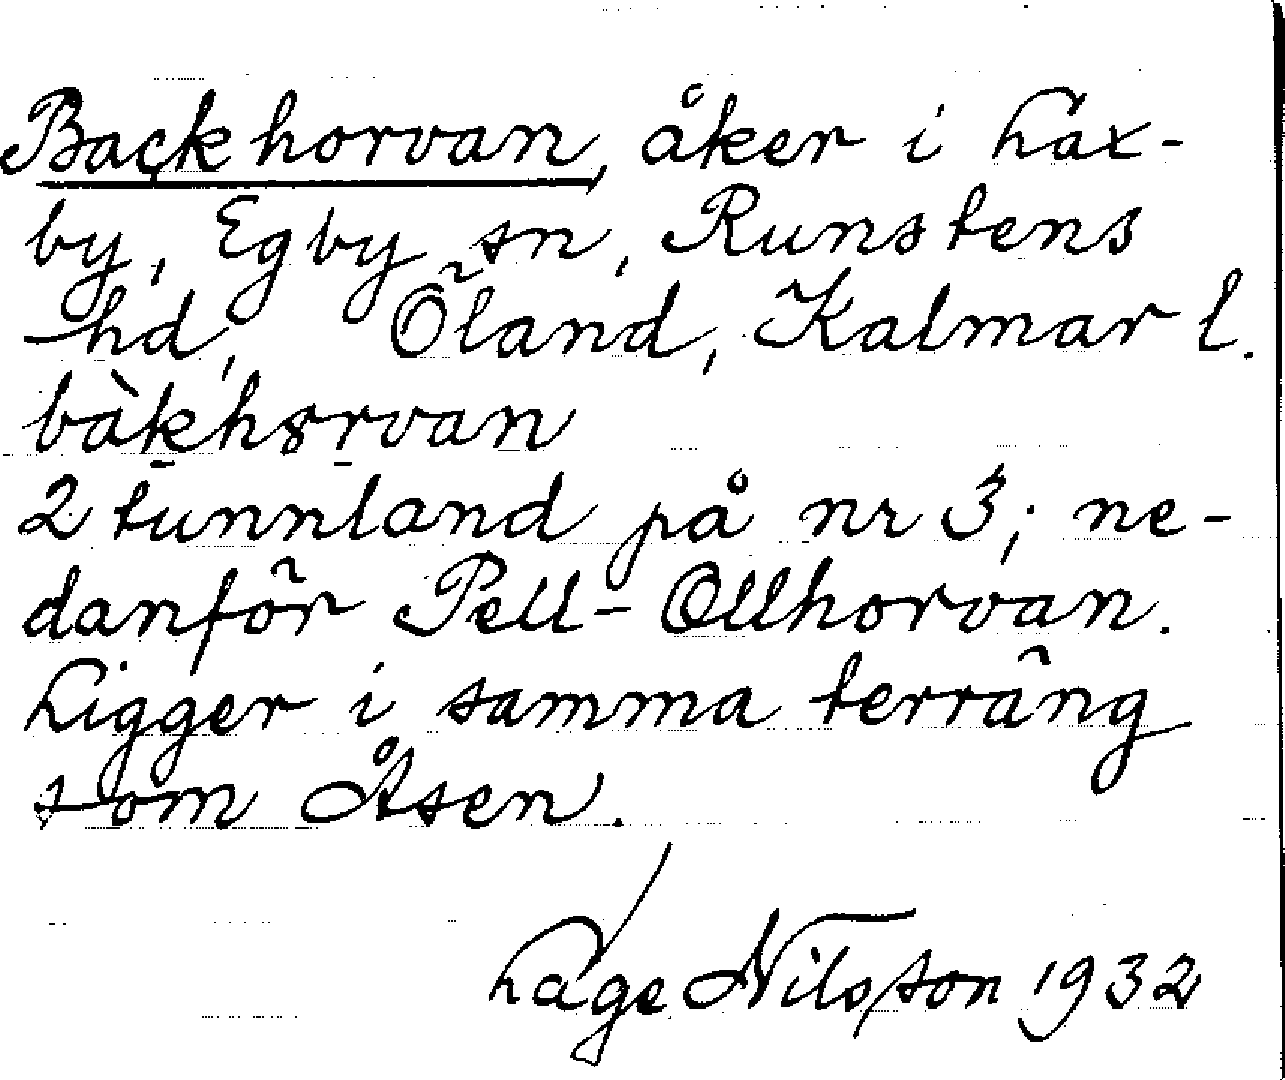 Backhorvan, åker i Lax-
by, Egby sn, Runstens
hd, Öland, Kalmar l.
bàkhɷrvan
2 tunnland på nr 3; ne-
danför Pell-Ollhorvan.
Ligger i samma terräng
som Åsen.
Lage Nilsson 1932